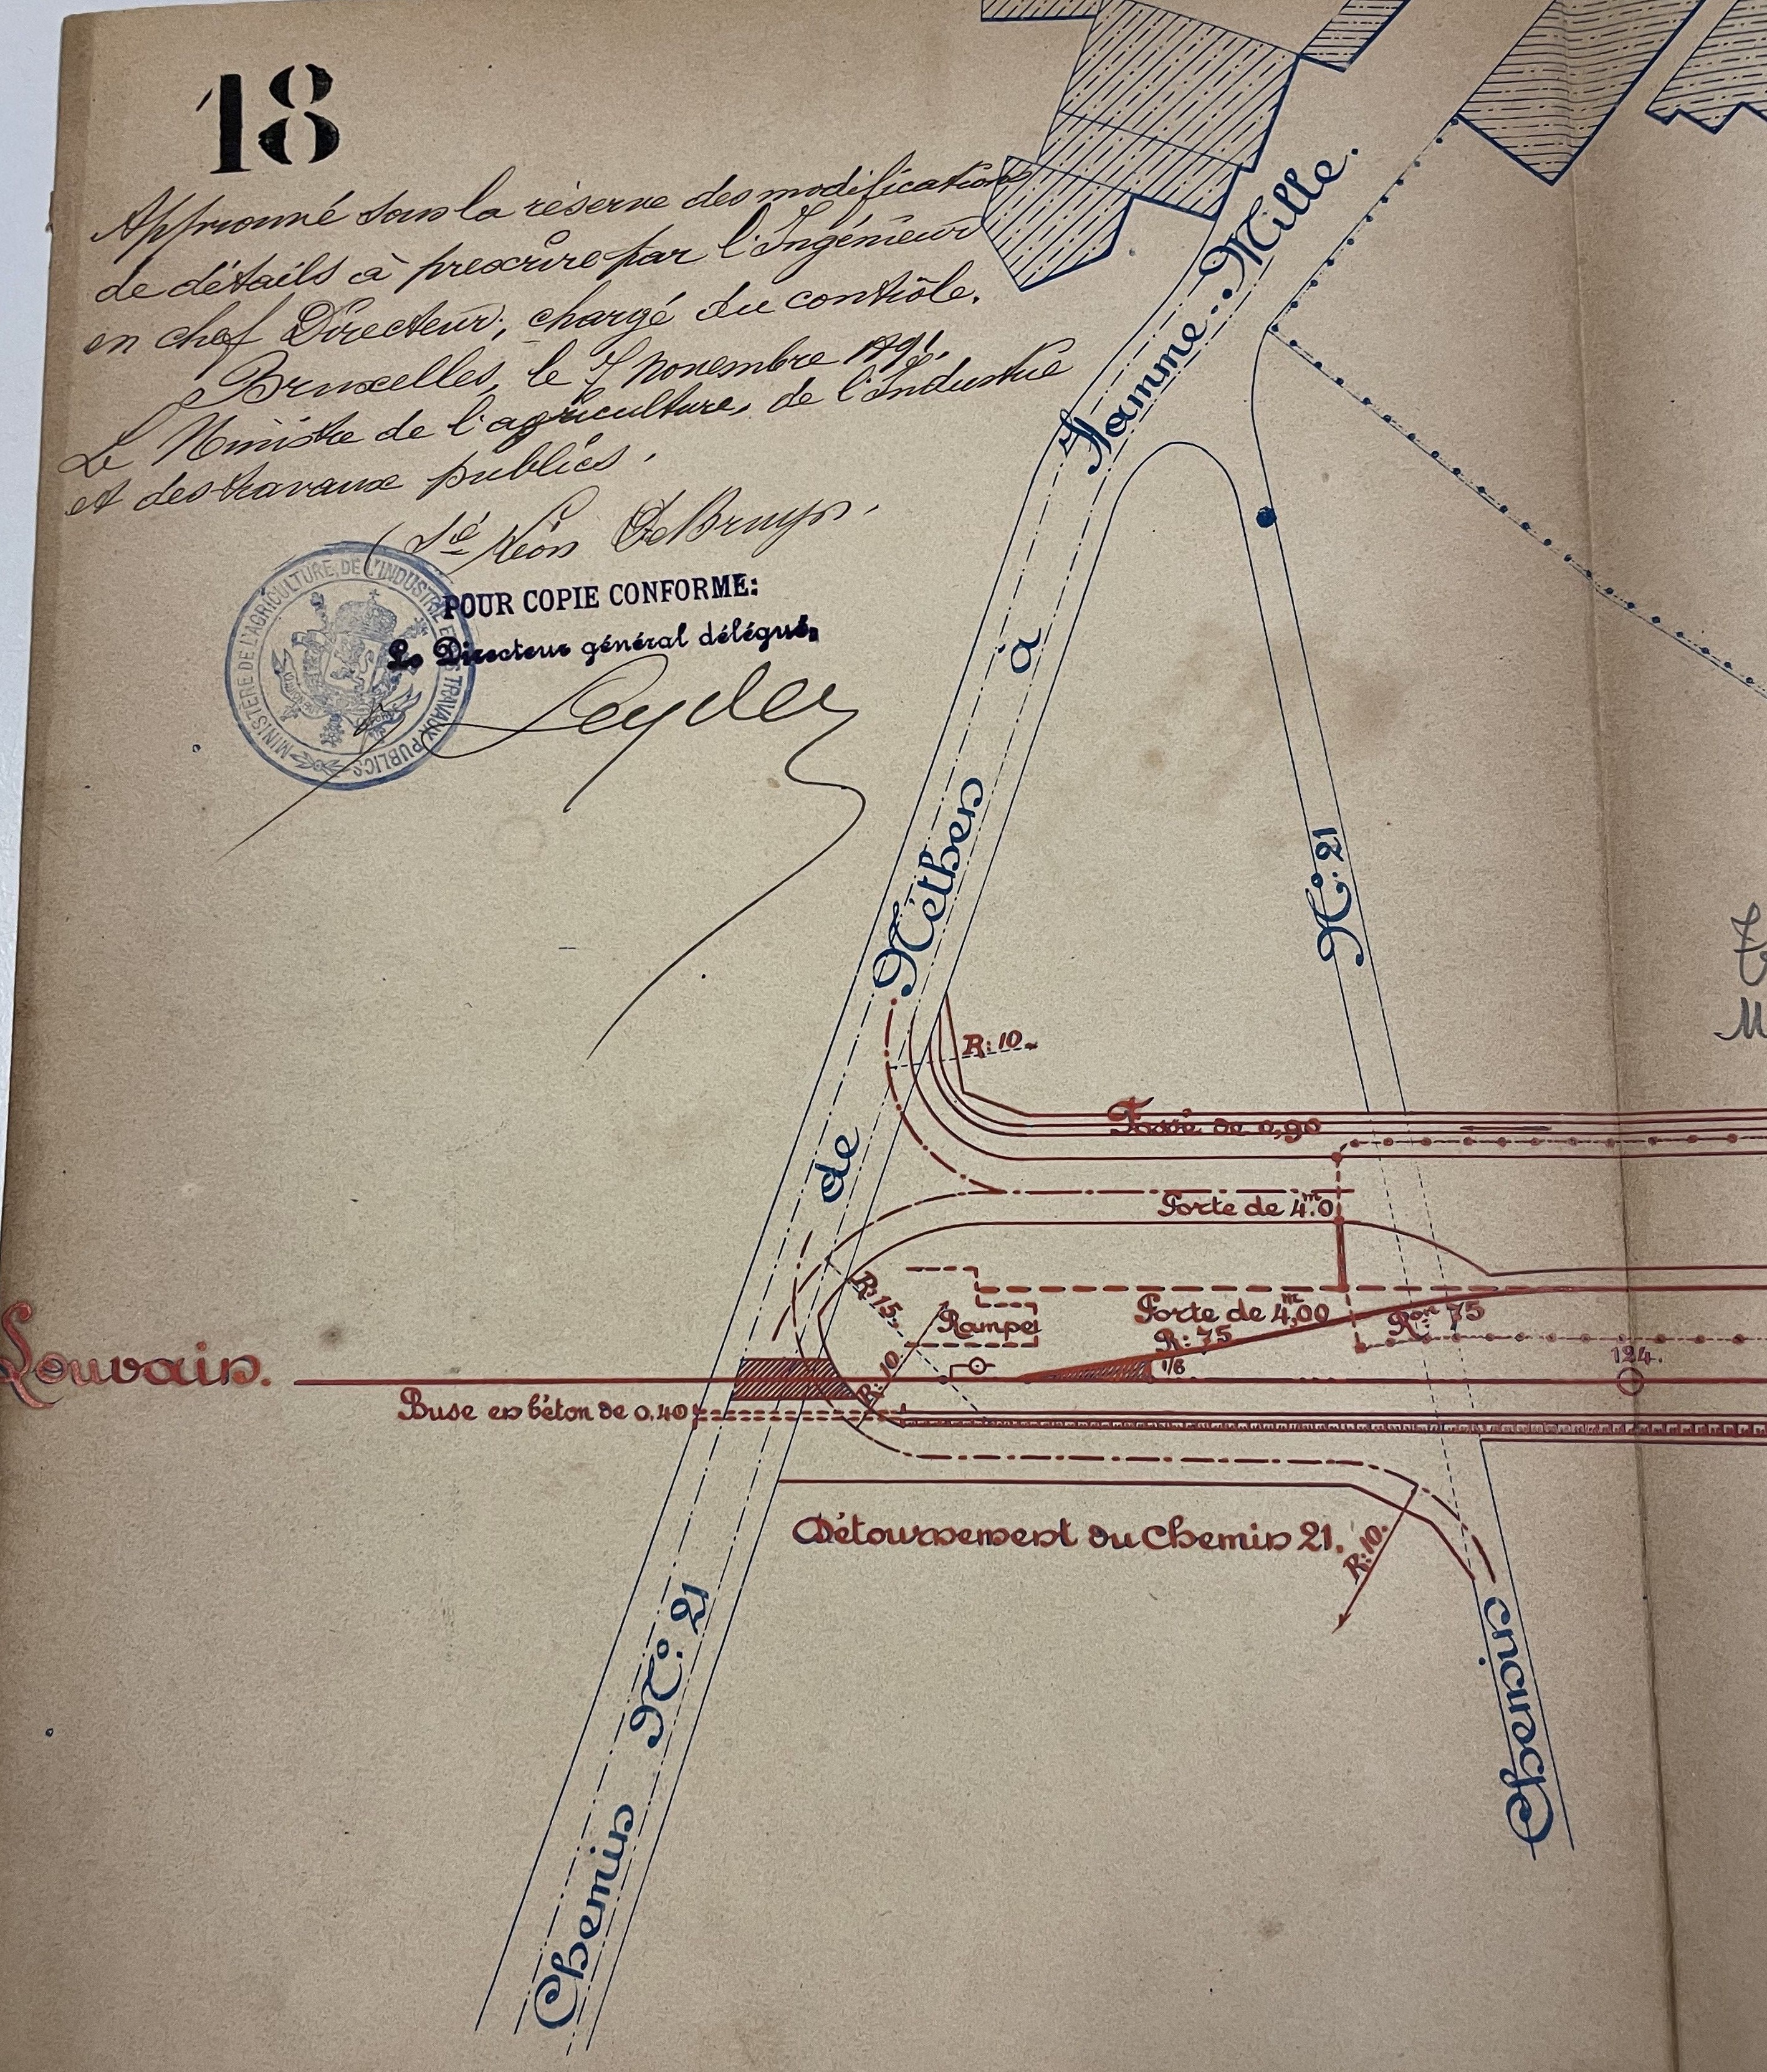 18
Approuvé sous la réserve des modifications
de détails à prescrire par l'Ingénieur
en chef Directeur, chargé du contrôle.
Bruxelles, le 7 novembre 1891.
Le Ministre de l'agriculture, de l'Industrie
et des travaux publics.
(Sé Léon De Bruyn.
POUR COPIE CONFORME:
Le Directeur général délégué,
MINISTÈRE DE L'AGRICULTURE, DE L'INDUSTRIE ET DES TRAVAUX PUBLICS
Hamme-Mille.
à
Néthen
de
Chemin N° 21
N° 21
Chemin
R: 10
Fossé de 0,90
Porte de 4m.0
R: 15.
Rampe
Porte de 4m,00
R: 75
Ron 75
1/8
124.
R: 10
Louvain.
Buse en béton de 0,40
Détournement du Chemin 21.
R: 10.